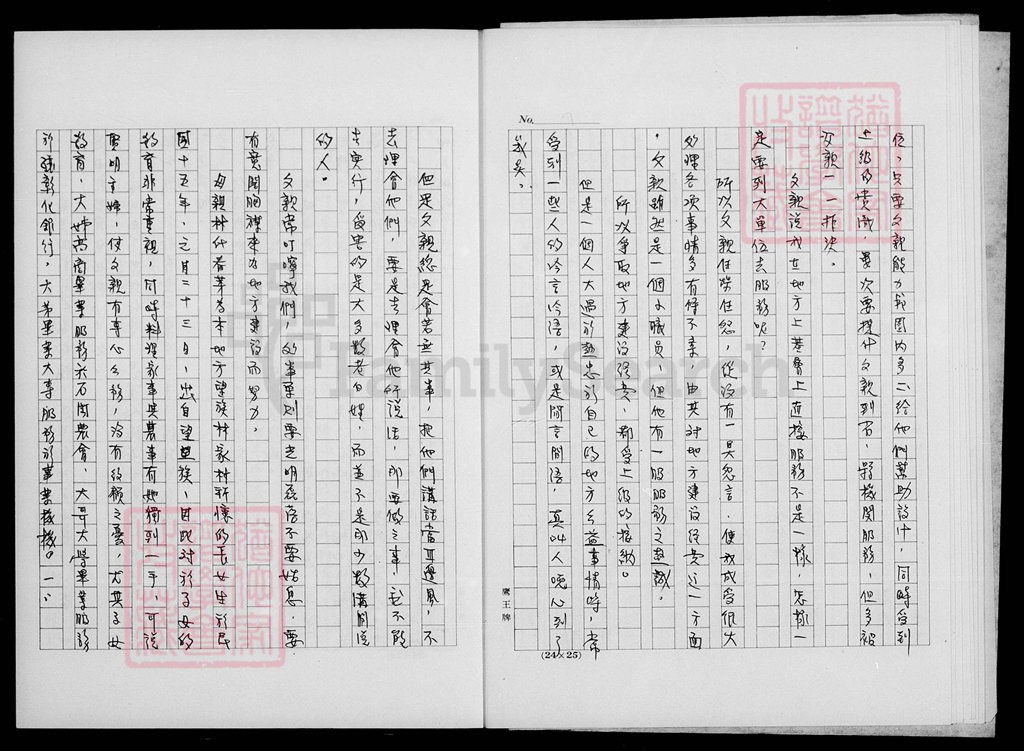 No.
位，只要父親能力範圍內多二給他們幫助設計，同時受到
上級的賞識，是次要提什父親到省、縣機關服務，但多被
父親一一拒決。
父親說我在地方上基層上直接服務不是一樣，怎樣一
走要到大單位去服務呢？
所以父親任勞任怨，從沒有一具怨言，使我感受很大
處理各項事情多有條不紊，由其對地方建設經費這一方面
。父親雖然是一個小職員，但他有一股服務之熱誠。
所以爭取地方建設經費，都受上級的接納。
但是一個人大過於熱忠於自己的地方公益事情時，常
受到一些人的冷言冷語，或是閒言閒語，真叫人灰心到了
鷹王牌
(24×25)
但是父親總是會若無其事，把他們講話當耳邊風，不
去理會他們，要是去理會他所說話，那要做之事，就不能
去實行，受害的是大多數老百姓，而並不是那少數講閒話
的人。
父親常叮嚀我們，處事原則要光明磊落不要姑息，要
有寬闊胸襟來為地方建設而努力。
母親林代春華為本地方望族林家林新懷的長女生於民
國十五年，之月二十三日，出自望族，因此對於子女的
教育非常重視，同時料理家事與農事有她獨到一手，可說
賢明主婦，使父親有專心公務，沒有後顧之憂，尤其子女
教育，大姊高商畢業服務於石岡農會，大哥大學畢業服務
於彰化銀行，大弟畢業大專服務於事業機構。一
FamilySearch